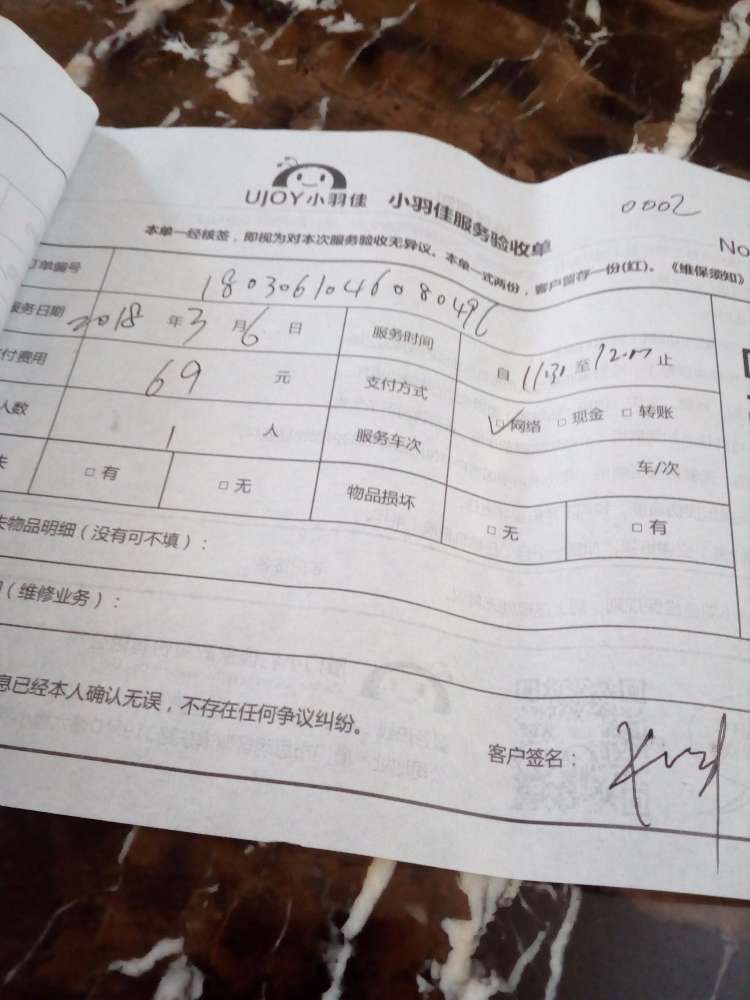 UJOY小羽佳 小羽佳服务验收单
0002
No
本单一经核签，即视为对本次服务验收无异议。本单一式两份，客户留存一份(红)。《维保须知》
订单编号 180306104608049
服务日期 2018 年 3 月 6 日 服务时间 自 11:30 至 12:00 止
付费用 69 元 支付方式 ☑网络 □现金 □转账
人数 1 人 服务车次 车/次
失 □有 □无 物品损坏 □无 □有
失物品明细（没有可不填）：
（维修业务）：
息已经本人确认无误，不存在任何争议纠纷。
客户签名：